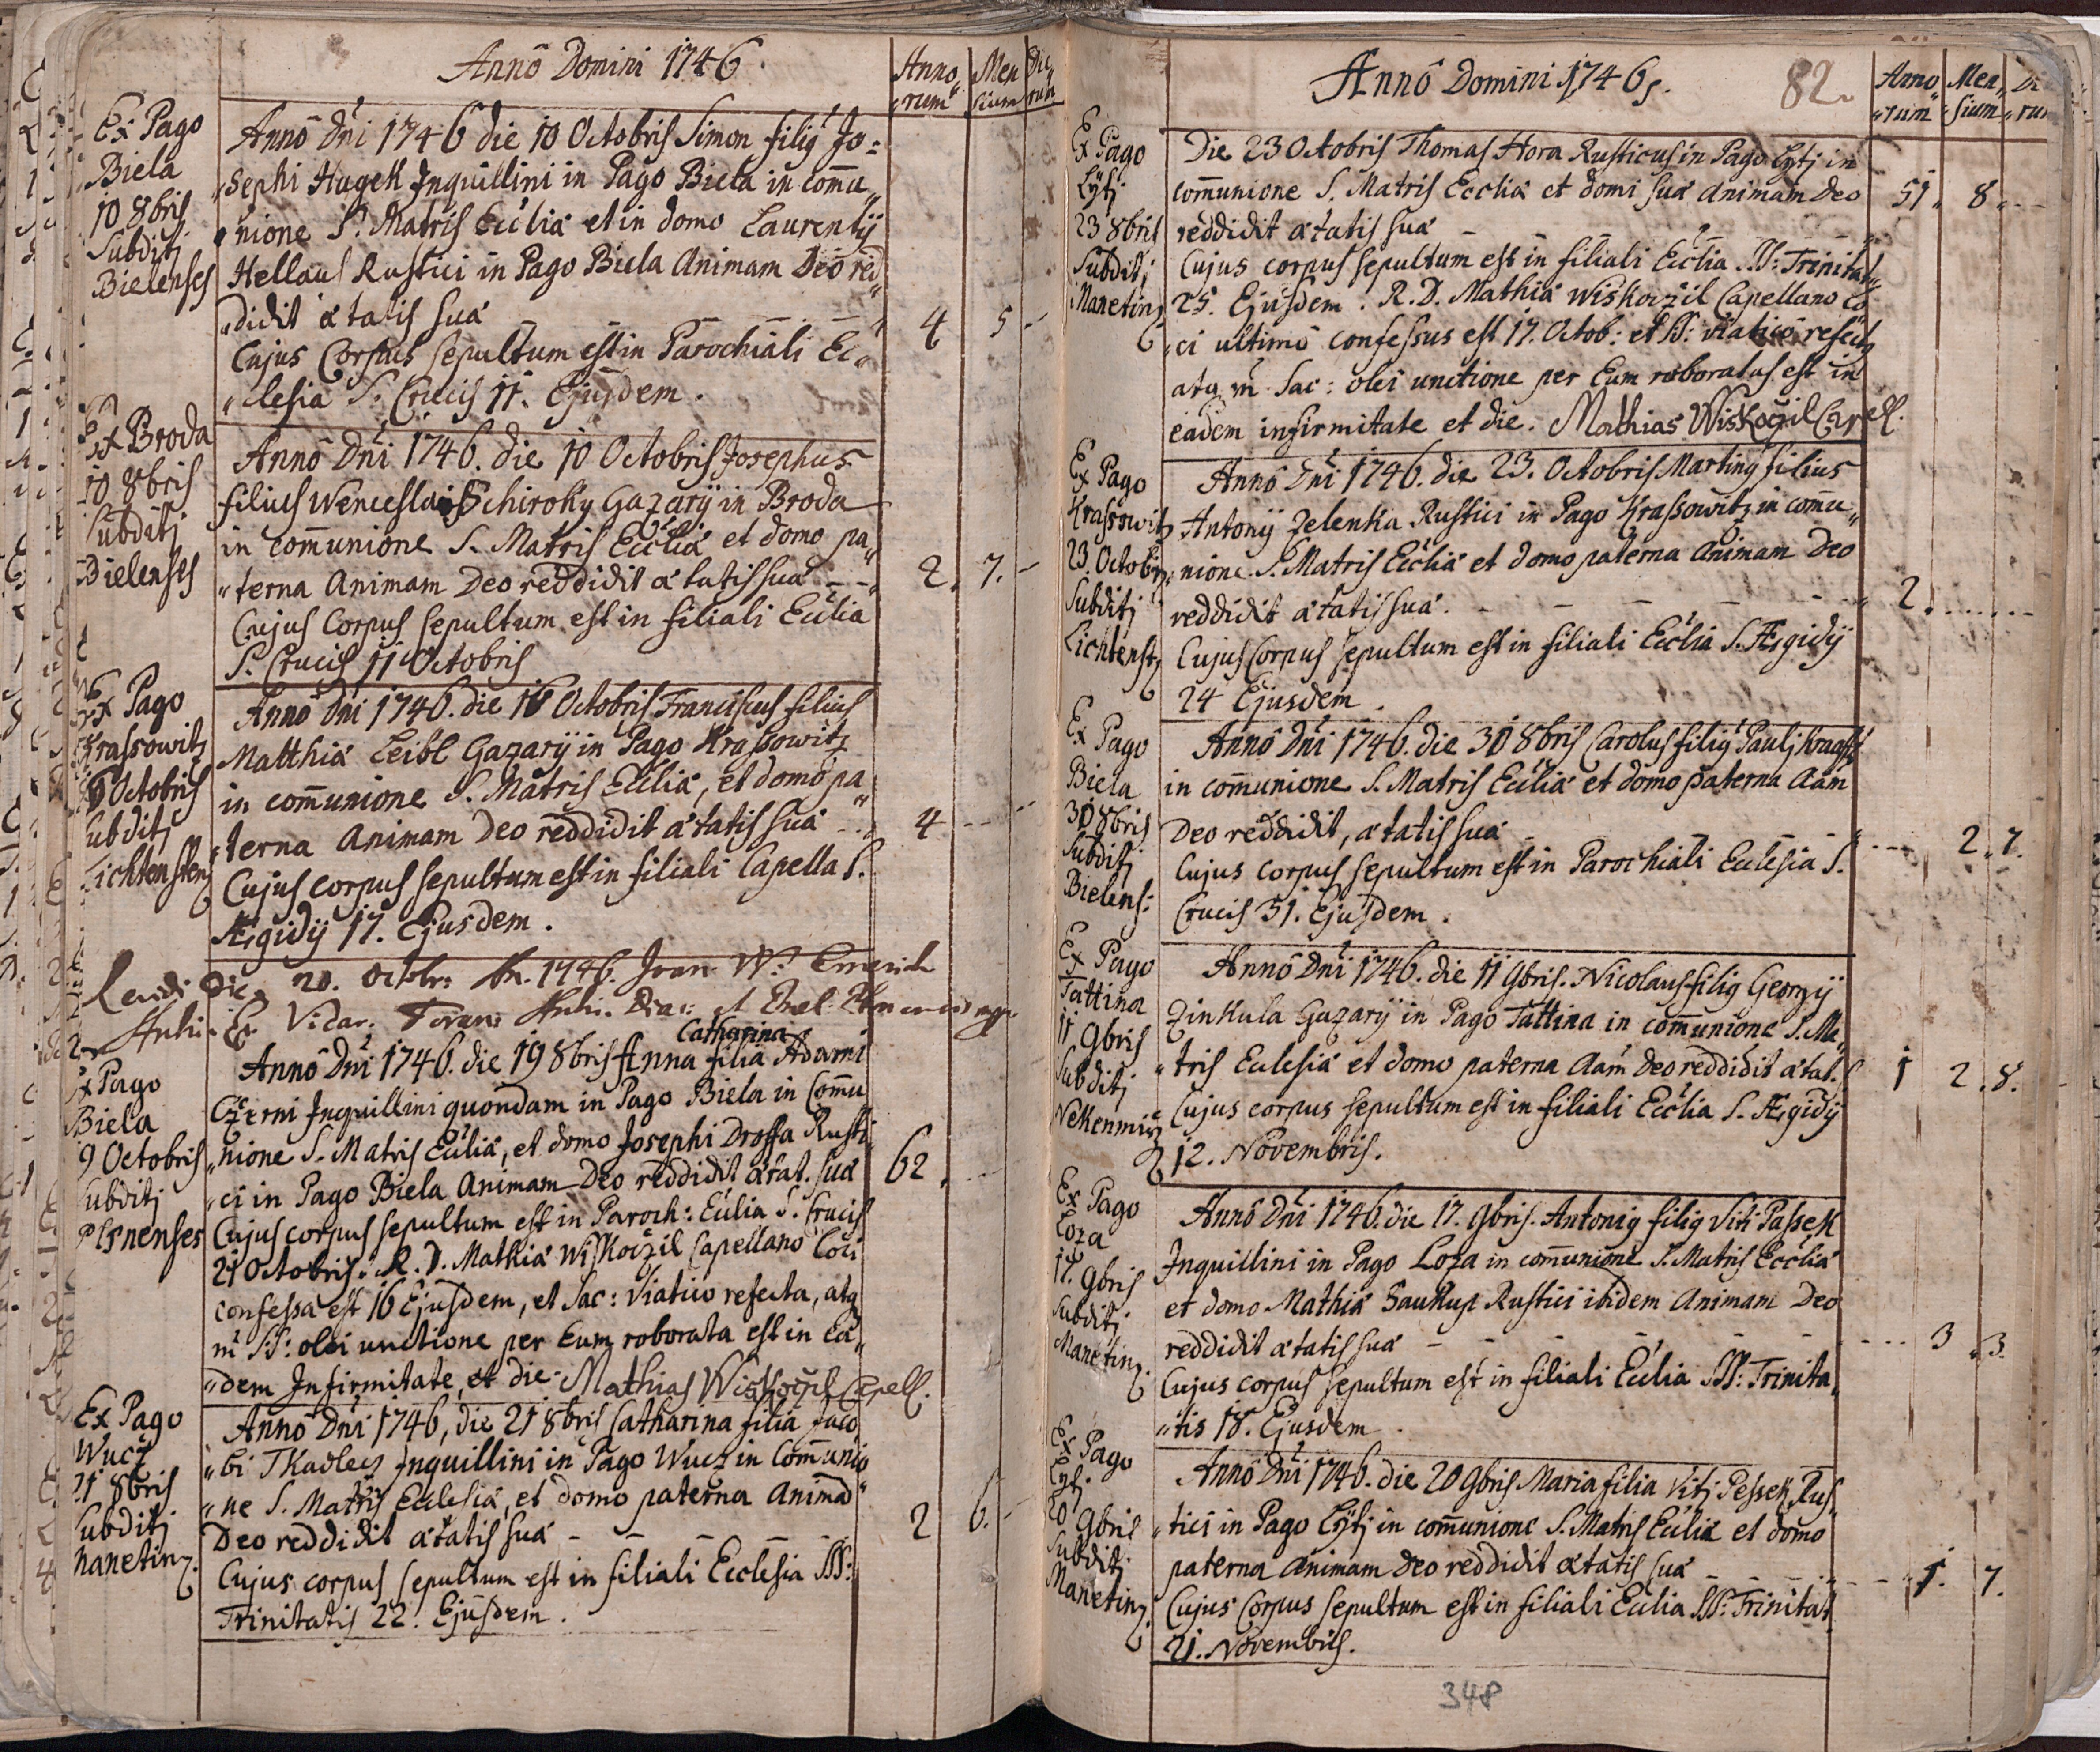 Annô Domini 1746.
Anno„ Men„ Die„
„rum„ sium rum
Ex Pago
Biela
10 8bris
Subditj
Bielenses
Annô Dni 1746 die 10 Octobris Simon filig Jo=
„sephi Hugek Inquillini in Pago Biela in comu„
„nione S. Matris Ecclia et in domo Laurentij
Hellaus Rustici in Pago Biela Animam Deo red„
„didit ætatis sua 4 5
Cujus Corpus sepultum est in Parochiali Ec„
„clesia S. Crucis 11. Ejusdem.
Ex Broda
10 8bris
Subditj
Bielenses
Annô Dni 1746. die 10 Octobris Josephus
filius Wenceslai Schiroky Gazarÿ in Broda
in comunione S. Matris Ecclia et domo pa„
„terna Animam Deo reddidit ætatis sua 2. 7.
Cujus Corpus sepultum est in filiali Ecclia
S. Crucis 11 Octobris
Ex Pago
Krassowitz
16 Octobris
Subditj
Lichtenstenz
Annô Dni 1746. die 16 Octobris Franciscus filius
Matthiæ Leibl Gazarÿ in Pago Krassowitz
in comunione S. Matris Ecclia, et domo pa„
„terna Animam Deo reddidit ætatis sua 4
Cujus corpus sepultum est in filiali Capella S.
Ægidij 17. Ejusdem.
Die 20. Octobr: 1746.
Ex Pago
Biela
19 Octobris
Subditj
Plsnenses
Catharina
Annô Dni 1746. die 19 8bris Anna filia Adami
Czerni Inquillini quondam in Pago Biela in Comu
„nione S. Matris Ecclia, et domo Josephi Drossa Rusti
„ci in Pago Biela Animam Deo reddidit ætat. sua 62
Cujus corpus sepultum est in Paroch: Ecclia S. Crucis
21 Octobris. R. D. Mathia Wiskoczil Capellano Loci
confessa est 16 Ejusdem, et Sac: Viatico refecta, atq
m SS: olei unctione per Eum roborata est in Ea„
„dem Infirmitate, et die. Mathias Wiskočzil Capell.
Ex Pago
Wucz
21 8bris
Subditj
Manetinz
Annô Dni 1746, die 21 8bris Catharina filia Jaco
„bi Tkadlecz Inquillini in Pago Wucz in Comunio
„ne S. Matris Ecclesia, et domo paterna Animâ
Deo reddidit ætatis sua 2 6.
Cujus corpus sepultum est in filiali Ecclesia SS:
Trinitatis 22. Ejusdem.
Annô Domini 1746. 82.
Anno„ Men„ Di
„rum„ „sium„ „ru
Ex Pago
Lytj
23 8bris
Subditj
Manetinz
Die 23 Octobris Thomas Hora Rusticus in Pago Lytj in
comunione S. Matris Ecclia et domi sua Animam Deo 51. 8.
reddidit ætatis sua
Cujus corpus sepultum est in filiali Ecclia SS: Trinitat„
25. Ejusdem. R. D. Mathia Wiskoczil Capellano lo
„ci ultimô confessus est 17. Octob: et SS: viaticô refect9
atq m Sac: olei unctione per Eum roboratus est in
eâdem infirmitate et die. Mathias Wiskoczil Capell.
Ex Pago
Krassowitz
23. Octobr
Subditj
Lichtenstz
Annô Dni 1746. die 23. Octobris Marting filius
Antonij Zelenka Rustici in Pago Krassowitz in comu„
„nione S. Matris Ecclia et domo paterna Animam Deo
reddidit ætatis sua. 2.
Cujus Corpus sepultum est in filiali Ecclia S. Ægidij
24 Ejusdem.
Ex Pago
Biela
30 8bris
Subditj
Bielens:
Annô Dni 1746. die 30 8bris Carolus filig Paulj Kraafft
in comunione S. Matris Ecclia et domo paterna Aam
Deo reddidit, ætatis sua 2. 7.
Cujus corpus sepultum est in Parochiali Ecclesia S.
Crucis 31. Ejusdem.
Ex Pago
Tattina
11. 9bris
Subditj
Nekenmirz
Annô Dni 1746. die 11 9bris. Nicolaus filig Georgÿ
Zinkula Gazarÿ in Pago Tattina in comunione S. Ma„
„tris Ecclesia et domo paterna Aam Deo reddidit ætat. 1 2. 8.
Cujus corpus sepultum est in filiali Ecclia S. Ægidÿ
12. Novembris.
Ex Pago
Loza
17. 9bris
Subditj
Manetinz
Annô Dni 1746. die 17. 9bris. Antonig filig Viti Passek
Inquillini in Pago Loza in comunione S. Matris Ecclia
et domo Mathia Saukup Rustici ibidem Animam Deo
reddidit ætatis sua 3 3.
Cujus corpus sepultum est in filiali Ecclia SS: Trinita„
„tis 18. Ejusdem.
Ex Pago
Lytj.
20 9bris
Subditj.
Manetinz
Annô Dni 1746. die 20 9bris Maria filia Vitj Pessek Rus„
„tici in Pago Lytj in comunione S. Matris Ecclia et domo
paterna Animam Deo reddidit ætatis sua 1. 7.
Cujus Corpus sepultum est in filiali Ecclia SS: Trinitat
21. Novembris.
348